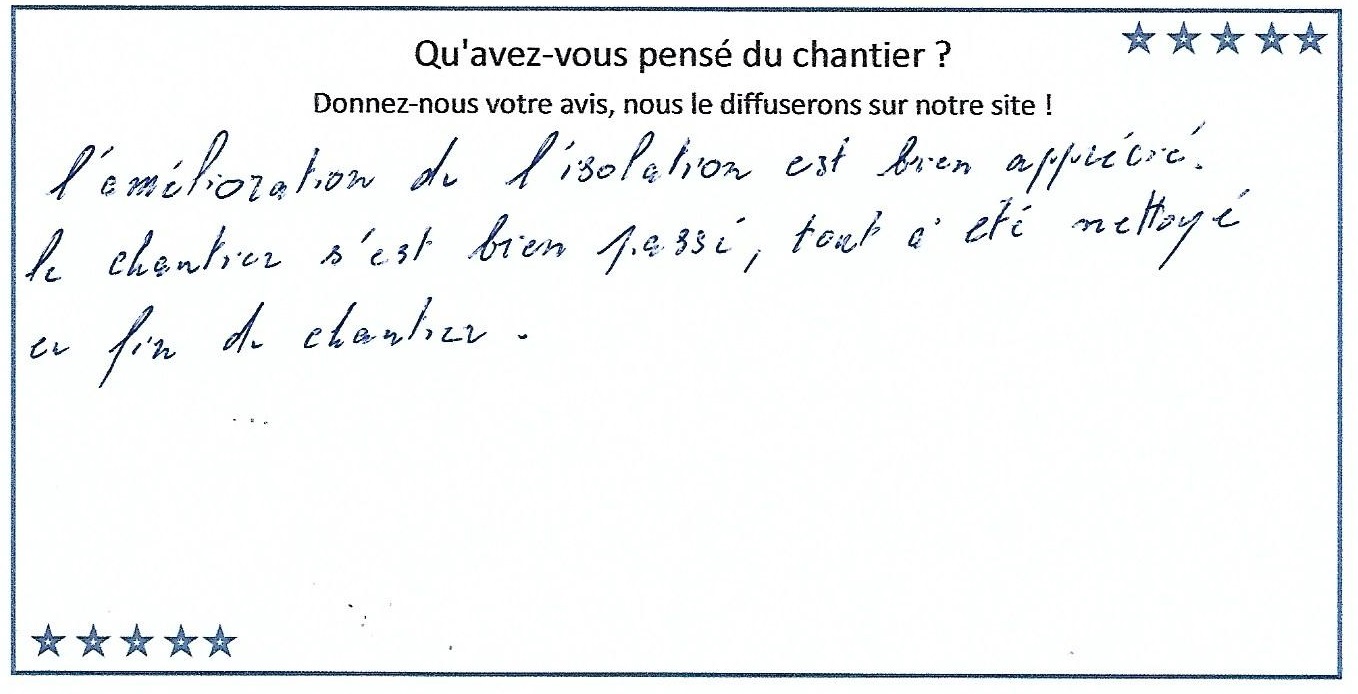 Qu'avez-vous pensé du chantier ?
Donnez-nous votre avis, nous le diffuserons sur notre site !
l'amélioration de l'isolation est bien apprécié.
le chantier s'est bien passé, tout à été nettoyé
en fin de chantier.